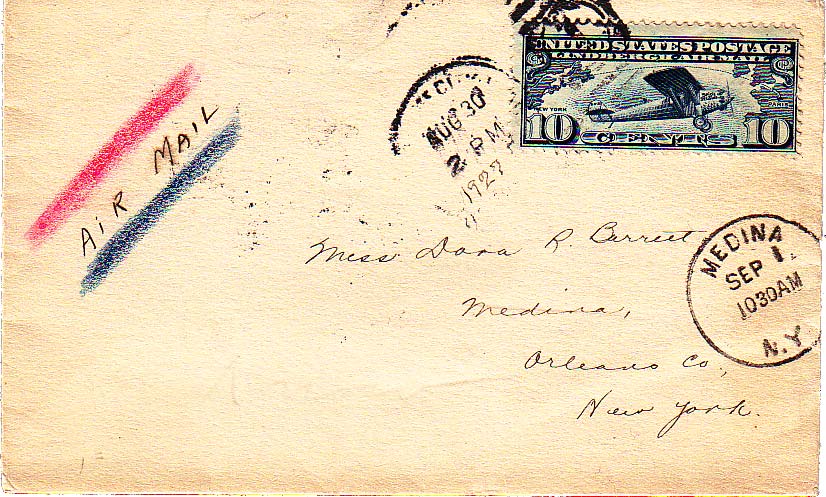 UNITED STATES POSTAGE
LINDBERGH AIR MAIL
NEW YORK
PARIS
10 CENTS 10
AUG 30
2 PM
1927
AIR MAIL
Miss Dora R. Barrett
Medina,
Orleans Co.,
New York.
MEDINA
SEP 1
1030AM
N.Y.